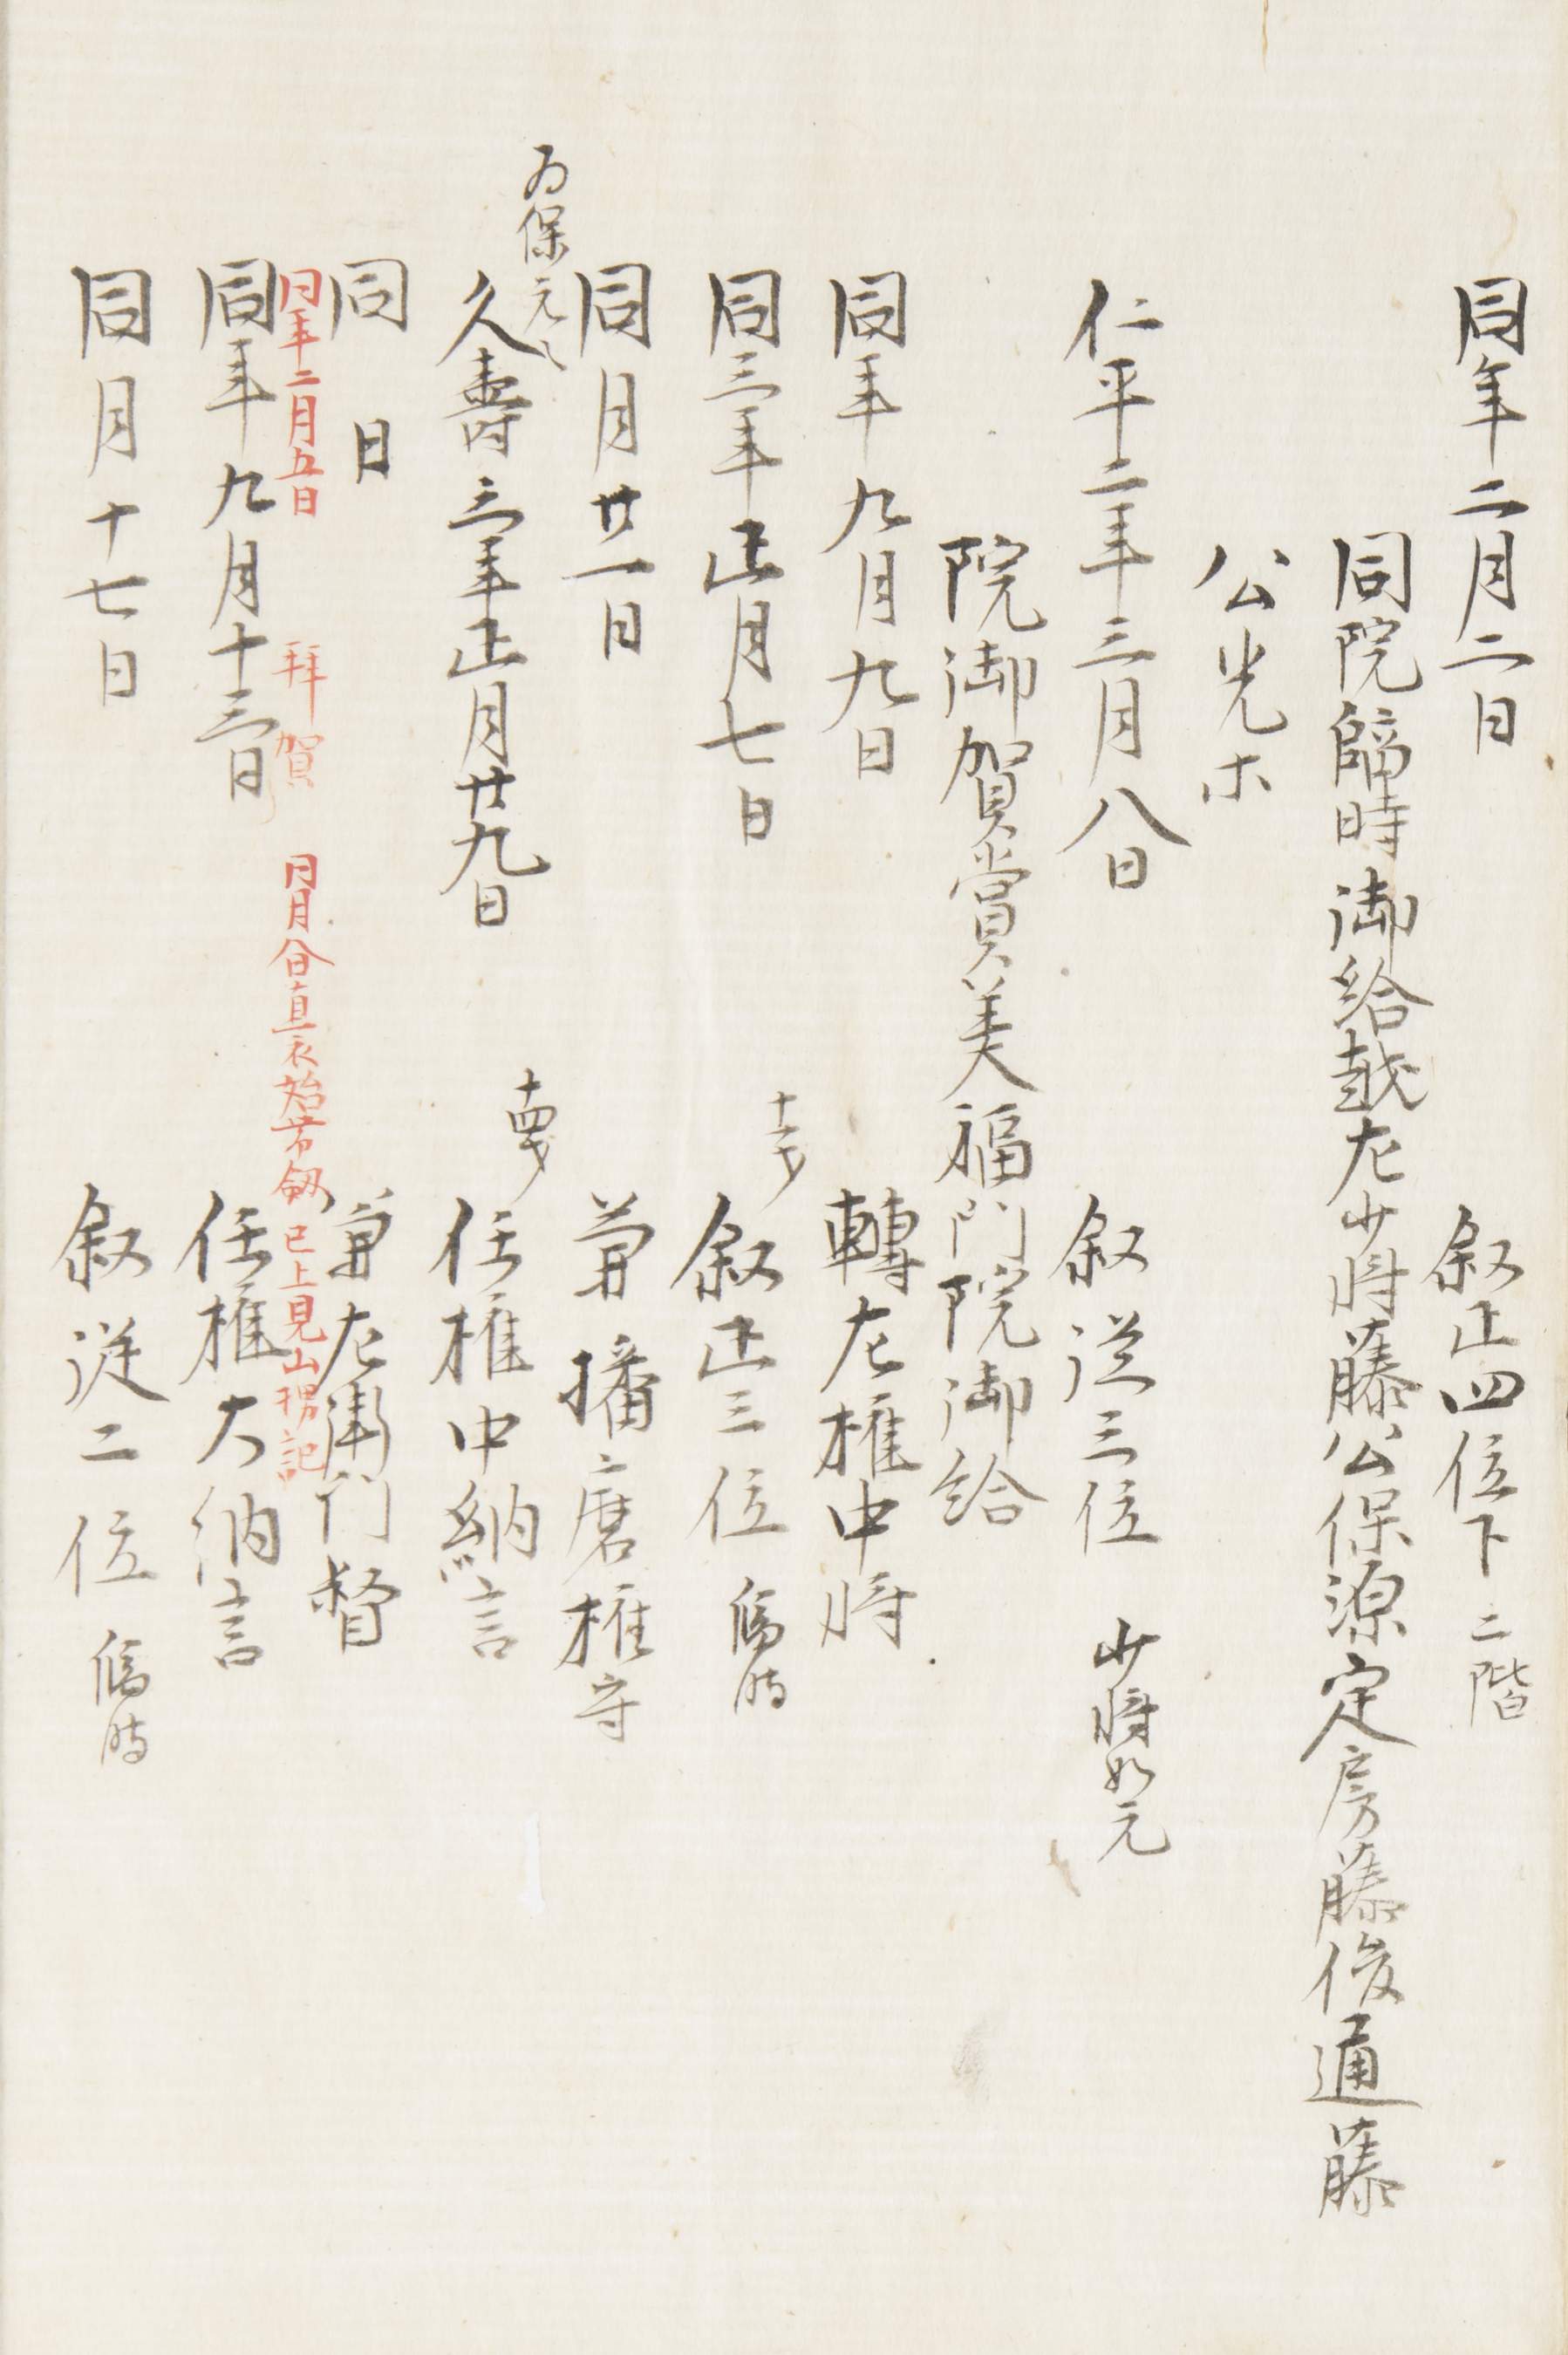 同年二月二日 叙正四位下 二階
同院臨時御給越左少将藤公保源定房藤俊通藤
公光ホ
仁平二年三月八日 叙従三位 少将如元
院御賀賞美福門院御給
同年九月九日 轉左権中将
同三年正月七日 叙正三位 臨時
同月廿一日 兼播磨権守
為保元
久壽三年正月廿九日 任権中納言
同日 兼左衛門督
同年二月五日 拜賀 同月八日直衣始帯劔 已上見山槐記
同年九月十三日 任権大納言
同月十七日 叙従二位 臨時